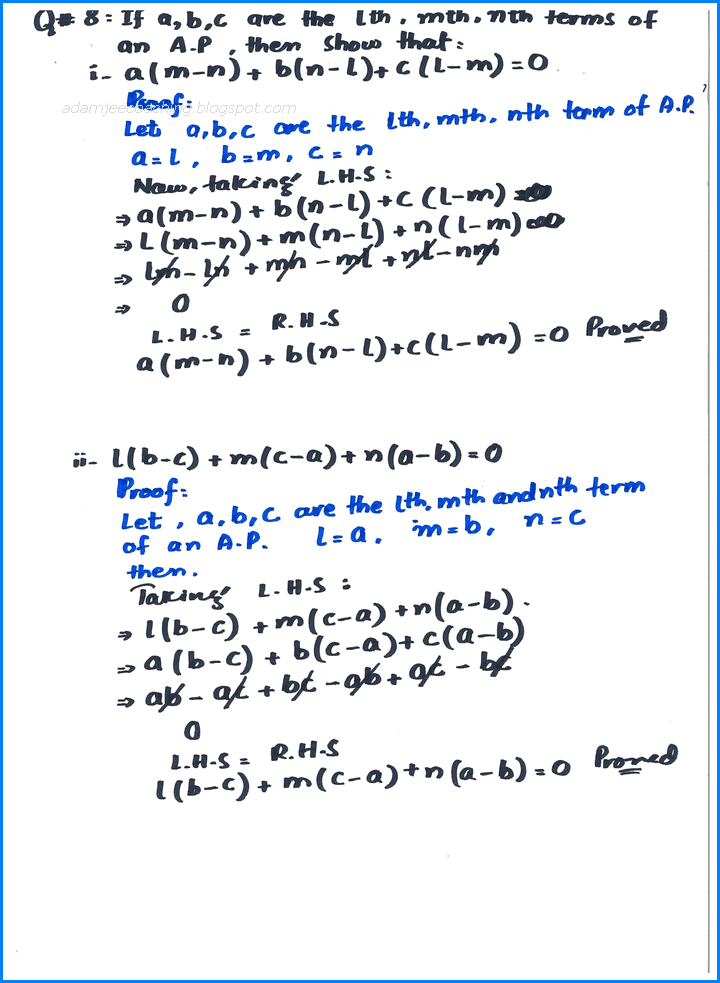 Q# 8: If a,b,c are the Lth, mth, nth terms of
an A.P, then show that:
i- a(m-n)+ b(n-L)+ c(L-m)=0
adamjeecoaching.blogspot.com
Proof:
Let a,b,c are the Lth, mth, nth term of A.P.
a=L, b=m, c=n
Now, taking L.H.S:
⇒ a(m-n)+ b(n-L)+c(L-m)
⇒ L(m-n)+m(n-L)+n(L-m)
⇒ Lm-Ln + mn - mL + nL - nm
⇒ 0
L.H.S = R.H.S
a(m-n) + b(n-L)+c(L-m) =0 Proved
ii- l(b-c) + m(c-a)+n(a-b)=0
Proof:
Let, a,b,c are the lth, mth and nth term
of an A.P. l=a, m=b, n=c
then.
Taking L.H.S:
⇒ l(b-c) +m(c-a) +n(a-b).
⇒ a(b-c) + b(c-a)+c(a-b)
⇒ ab - ac + bc - ab + ac - bc
0
L.H.S = R.H.S
l(b-c)+ m(c-a)+n(a-b)=0 Proved